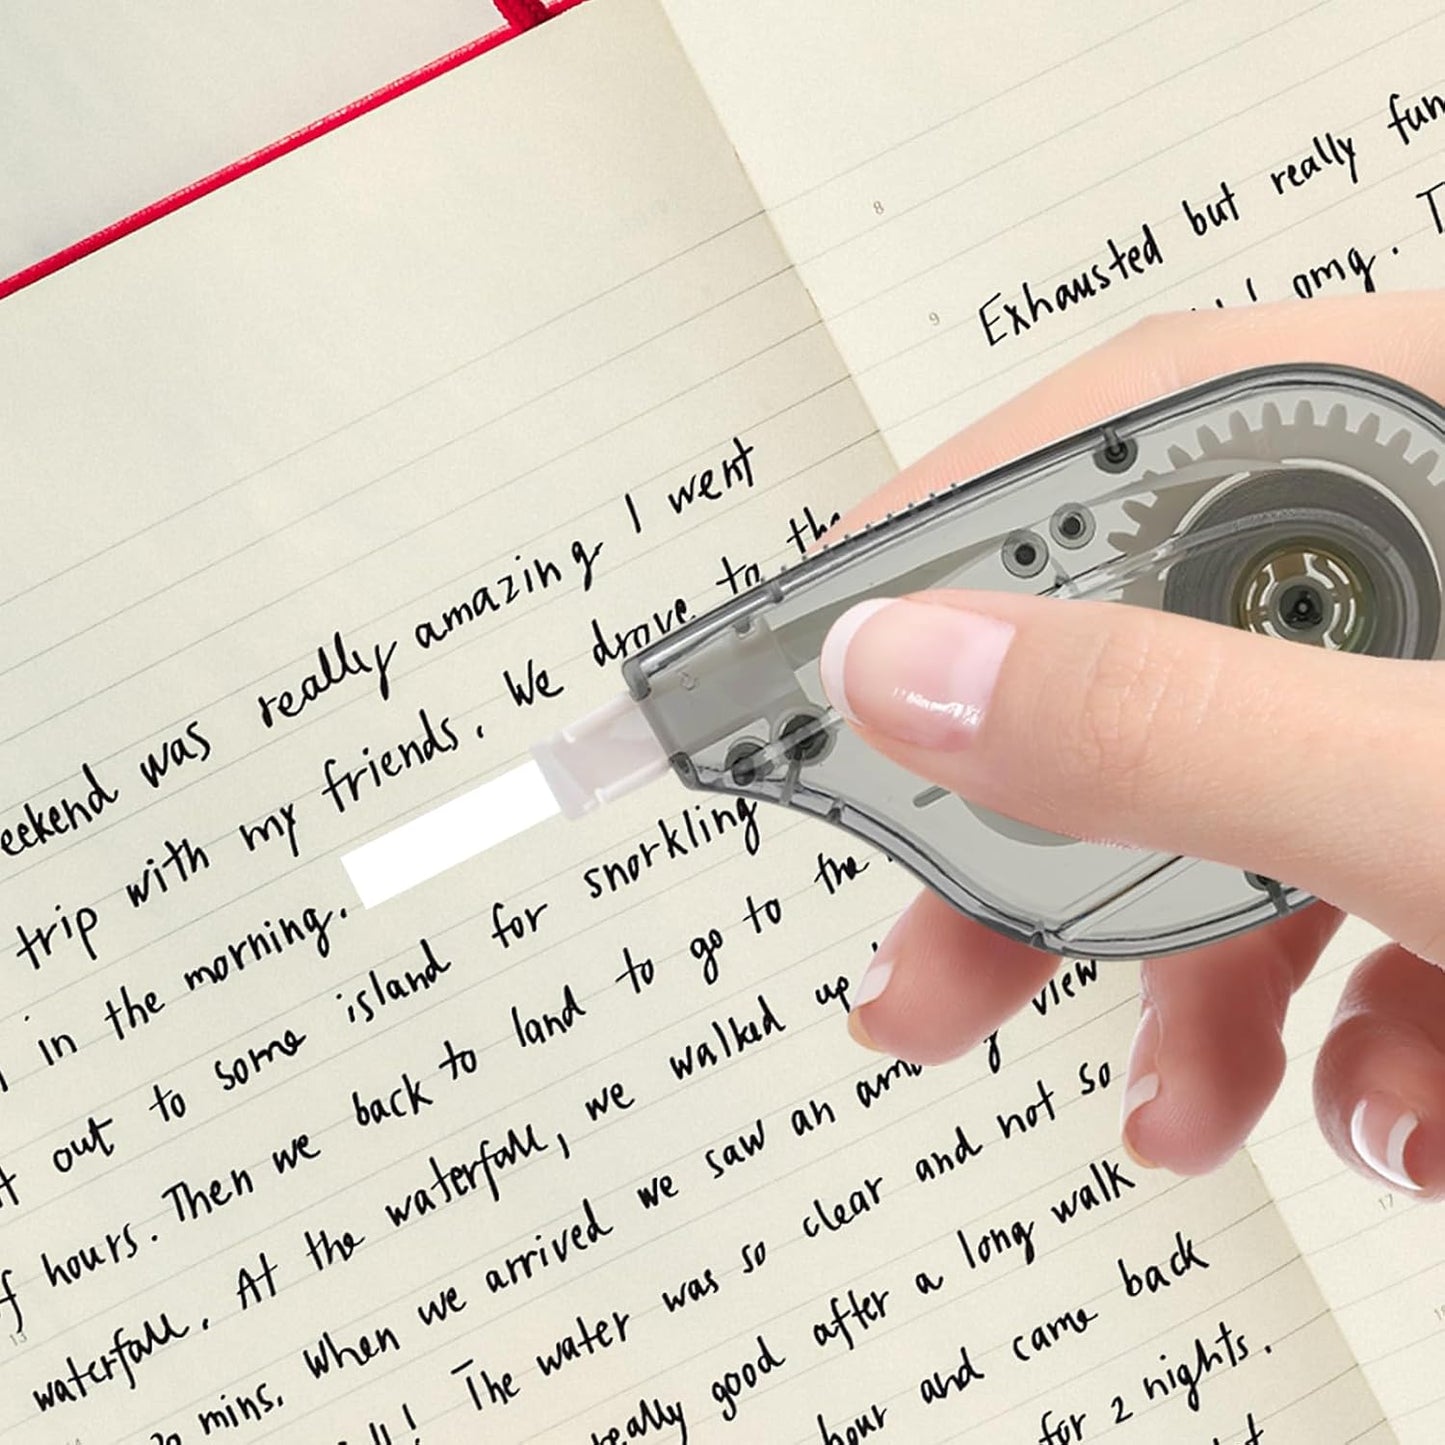 weekend was really amazing I went
trip with my friends. We drove to the
in the morning.
out to some island for snorkling
hours. Then we back to land to go to the
waterfall. At the waterfall, we walked up
mins. When we arrived we saw an amazing view
The water was so clear and not so
really good after a long walk
hour and came back
for 2 nights.
13
8
9
Exhausted but really fun
omg. T
17